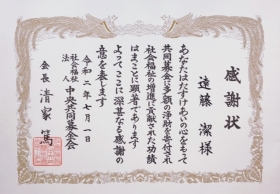 感謝状
遠藤潔様
あなたはたすけあいの心をもって
共同募金に多額の浄財を寄付され
社会福祉の増進に貢献された功績
はまことに顕著であります
よってここに深甚なる感謝の
意を表します
令和二年七月一日
社会福祉法人 中央共同募金会
会長 清家篤